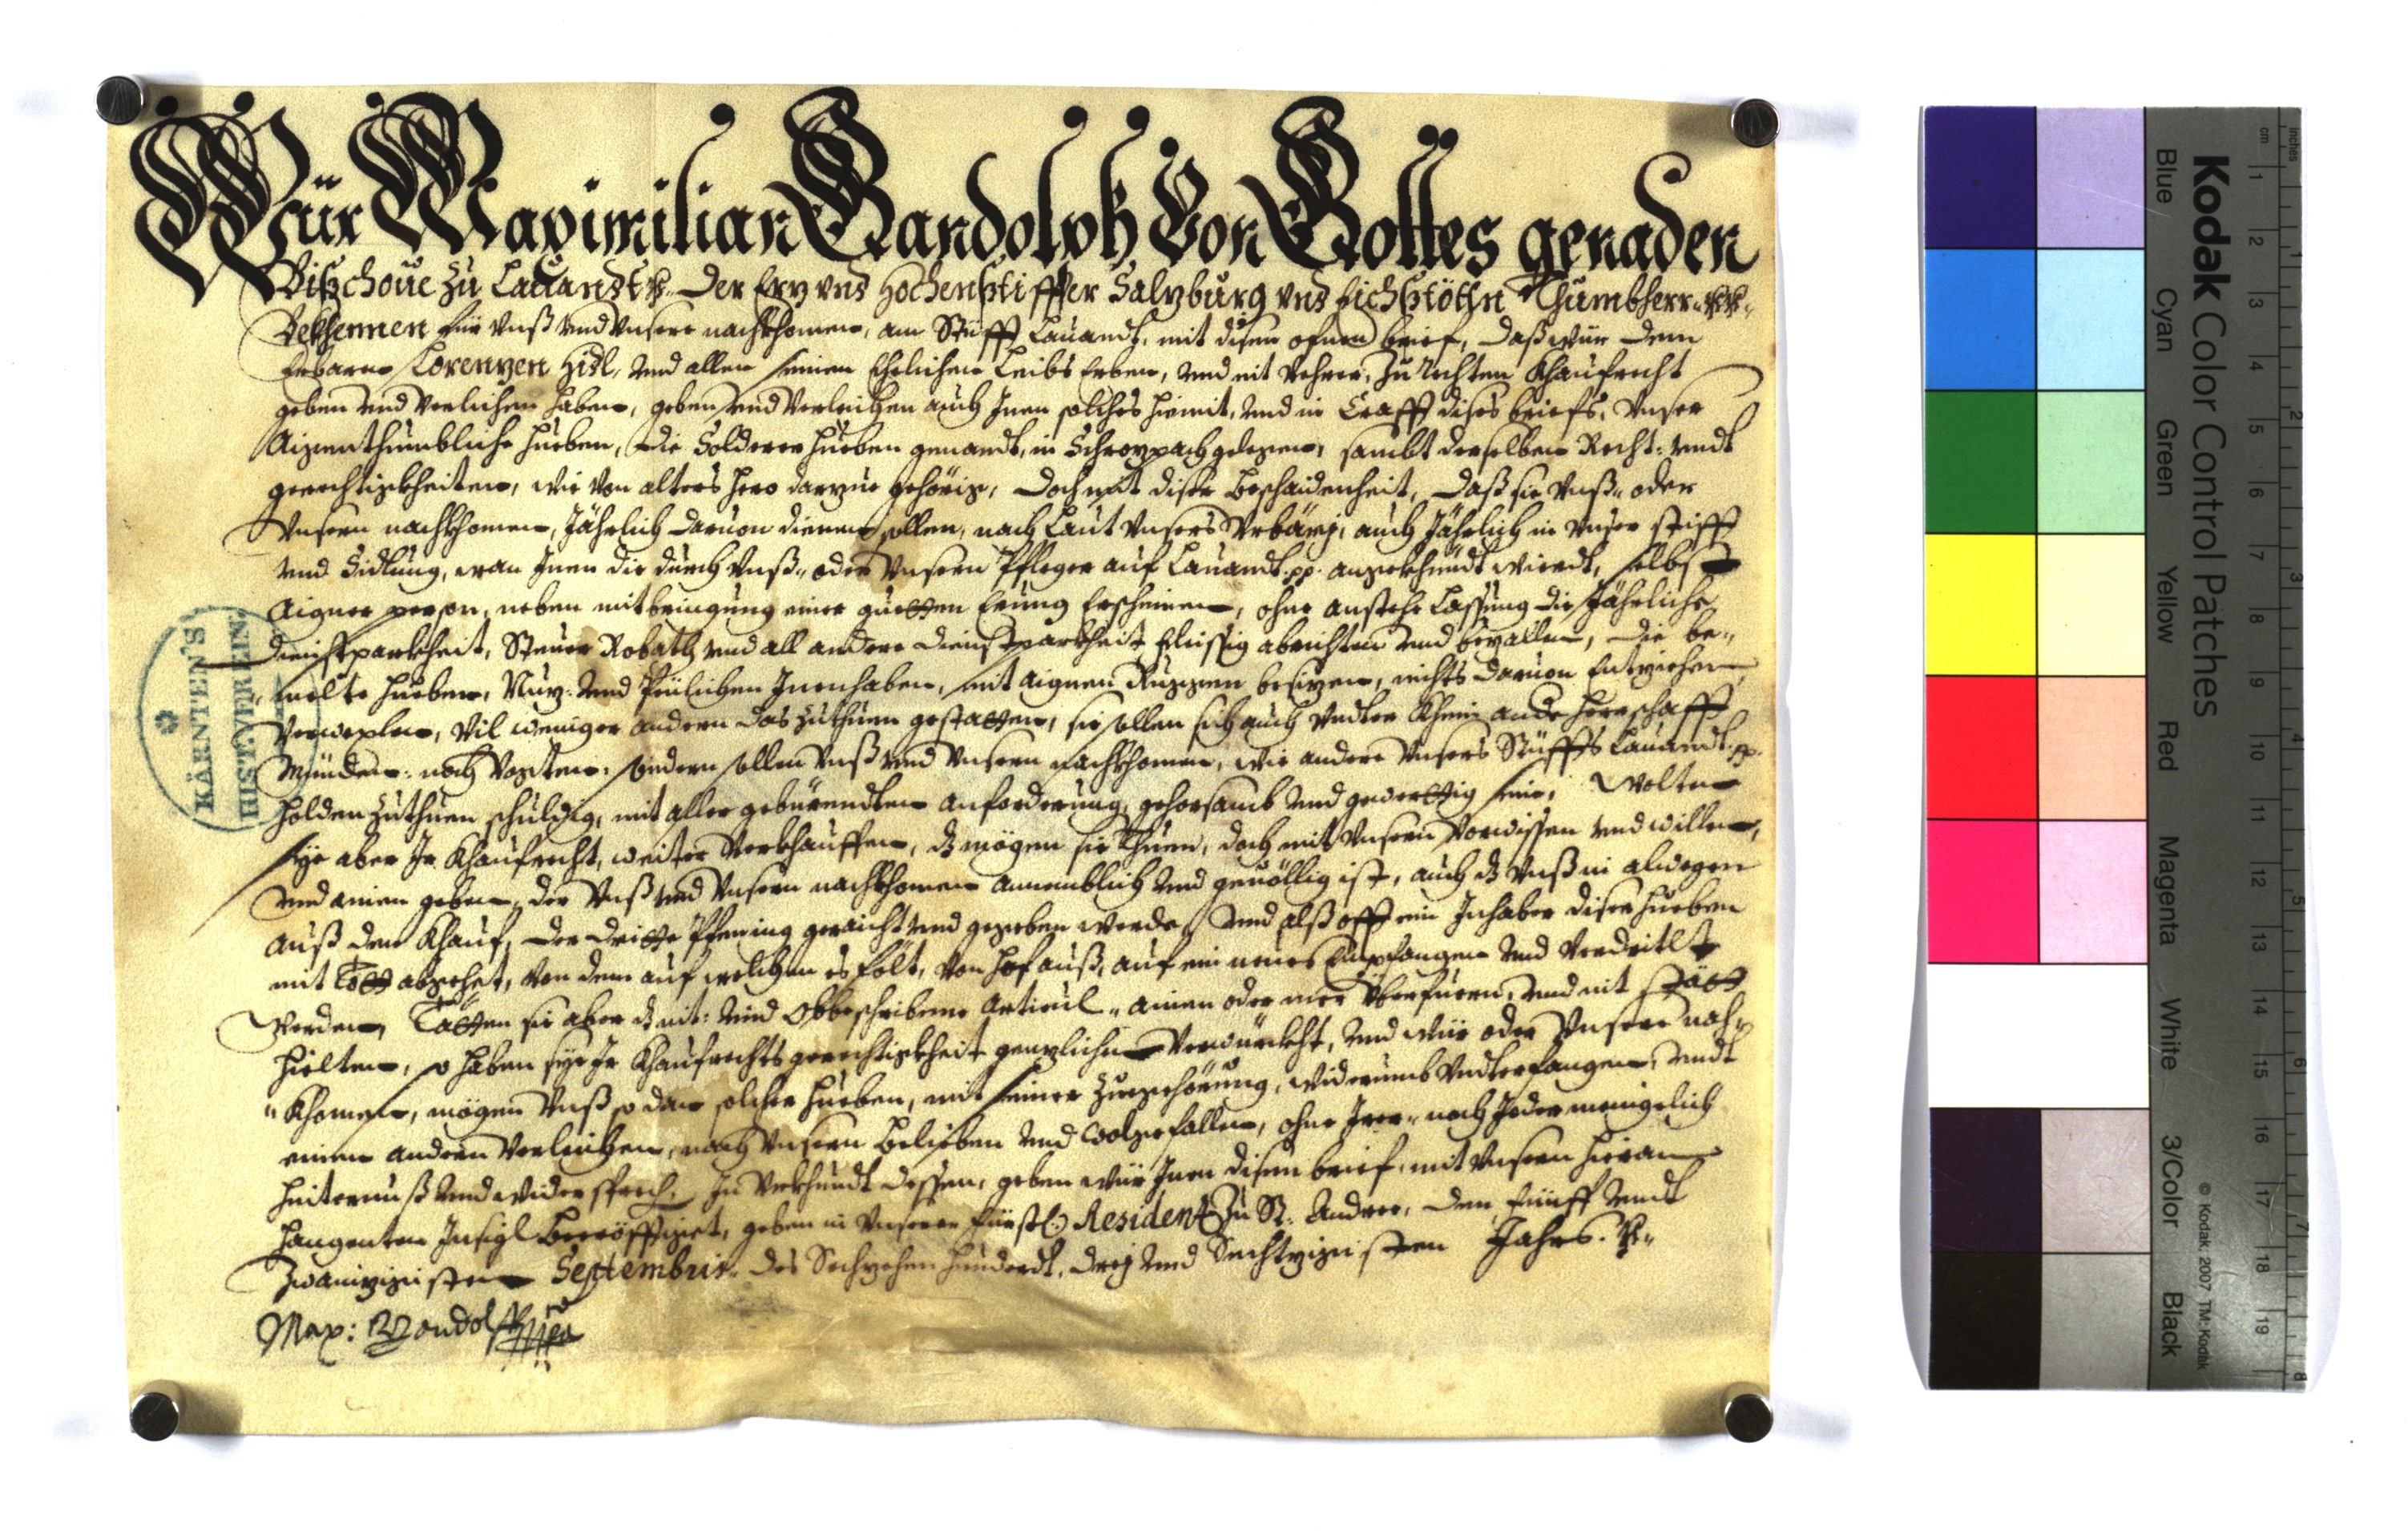 Wür Maximilian Gandolph Von Gottes genaden
Bischoue zu Lauandt p. Der Erz vnd Hochenstiffter Salzburg vnd Eichstöttn Thumbherr pp.
Bekhennen für Vnß vnd Vnsere nachkhomen, am Stüfft Lauandt, mit disen ofnen brief, daß wür dem
Erbarn Lorenzen Hidl, vnd allen seinen Ehelichen Leibs Erben, vnd nit Vehrer, zu Rechten Khaufrecht
geben vnd verlichen haben, geben vnd verleichen auch Inen solches hiemit, vnd in Crafft dises briefs, Vnser
Aigenthumbliche hueben, die Solderer hueben genandt, in Schrozpach gelegen, sambt derselben Recht: vndt
gerechtigkheiten, wie von alters hero darzue gehörig, Doch mit diser beschaidenheit, daß sie Vnß oder
Vnsern nachkhomen, Jährlich daruon dienen sollen, nach Laut Vnsers Vrbärj, auch Jährlich in Vnser stifft
vnd Sidlung, wan Inen die durch Vnß, oder Vnsern Pfleger auf Lauandt pp. angekhündt wierdt, selbst
Aigner person, neben mitbringung einer guetten Erung Erscheinen, ohne anstehe Lassung die Jährliche
dienstparkheit, Steuer Robath vnd all andere dienstparkheit fleissig abrichten vnd bezallen, die be-
melte hueben, Nuz- vnd Peülichen Innenhaben, mit aignen Ruggen besizen, nichts daruon Entziehen
Verwexlen, vil weniger andern das zuthuen gestatten, sie sollen sich auch vndter khein ande herrschafft
Münden: noch Vogten: sondern sollen Vnß vnd Vnsern nachkhomen, wie andere Vnsers Stüffts Lauandt pp.
holden zuthuen schuldig, mit aller gebürendten anforderung, gehorsamb vnd gewerttig sein, Wolten
sye aber Ir Khaufrecht, weiter Verkhauffen, dz mögen sie thuen, doch mit Vnsern Vorwissen vnd willen,
vnd ainen geben, der Vnß vnd Vnsern nachkhomen annemblich vnd geuöllig ist, auch dz Vnß in alwegen
auß dem Khauf, der dritte Pfening geraicht vnd gegeben werde, vnd alß offt ein Inhaber diser hueben
mit Tott abgehet, von dem auf welchen es fölt, von hof auß, auf ein neues Empfangen vnd verdritlt
werden, Tätten sie aber dz nit: vnd Obbeschribene Articul, ainen oder mer Überfuern, vnd nit stätt
hielten, so haben sye Ir Khaufrechts gerechtigkheit genzlichen Verwürkht, vnd wür oder Vnsere nach-
khomen, mögen Vnß so dan solcher hueben, mit seiner Zuegehörung, widerumb Vndterfangen, vndt
einem andern Verleichen, nach Vnsern belieben vnd wolgefallen, ohne Irer- noch Jeder meniglich
hinternuß vnd widersprech. In Vrkhundt dessen, geben wür Inen disen brief, mit Vnsern hieran
hangenten Insigl becröfftiget, geben in Vnserer Fürstl: Residenz zu St. Andree, den fünff vndt
Zwainzigisten Septembris. des Sechzehen hunderdt, drej vnd Sechzigisten Jahrs. p.
Max: Gandolph
KÄRNTEN'S
HIST. VEREIN
Kodak Color Control Patches
Blue Cyan Green Yellow Red Magenta White 3/Color Black
© Kodak, 2007 TM: Kodak
cm 1 2 3 4 5 6 7 8 9 10 11 12 13 14 15 16 17 18 19
inches 1 2 3 4 5 6 7 8